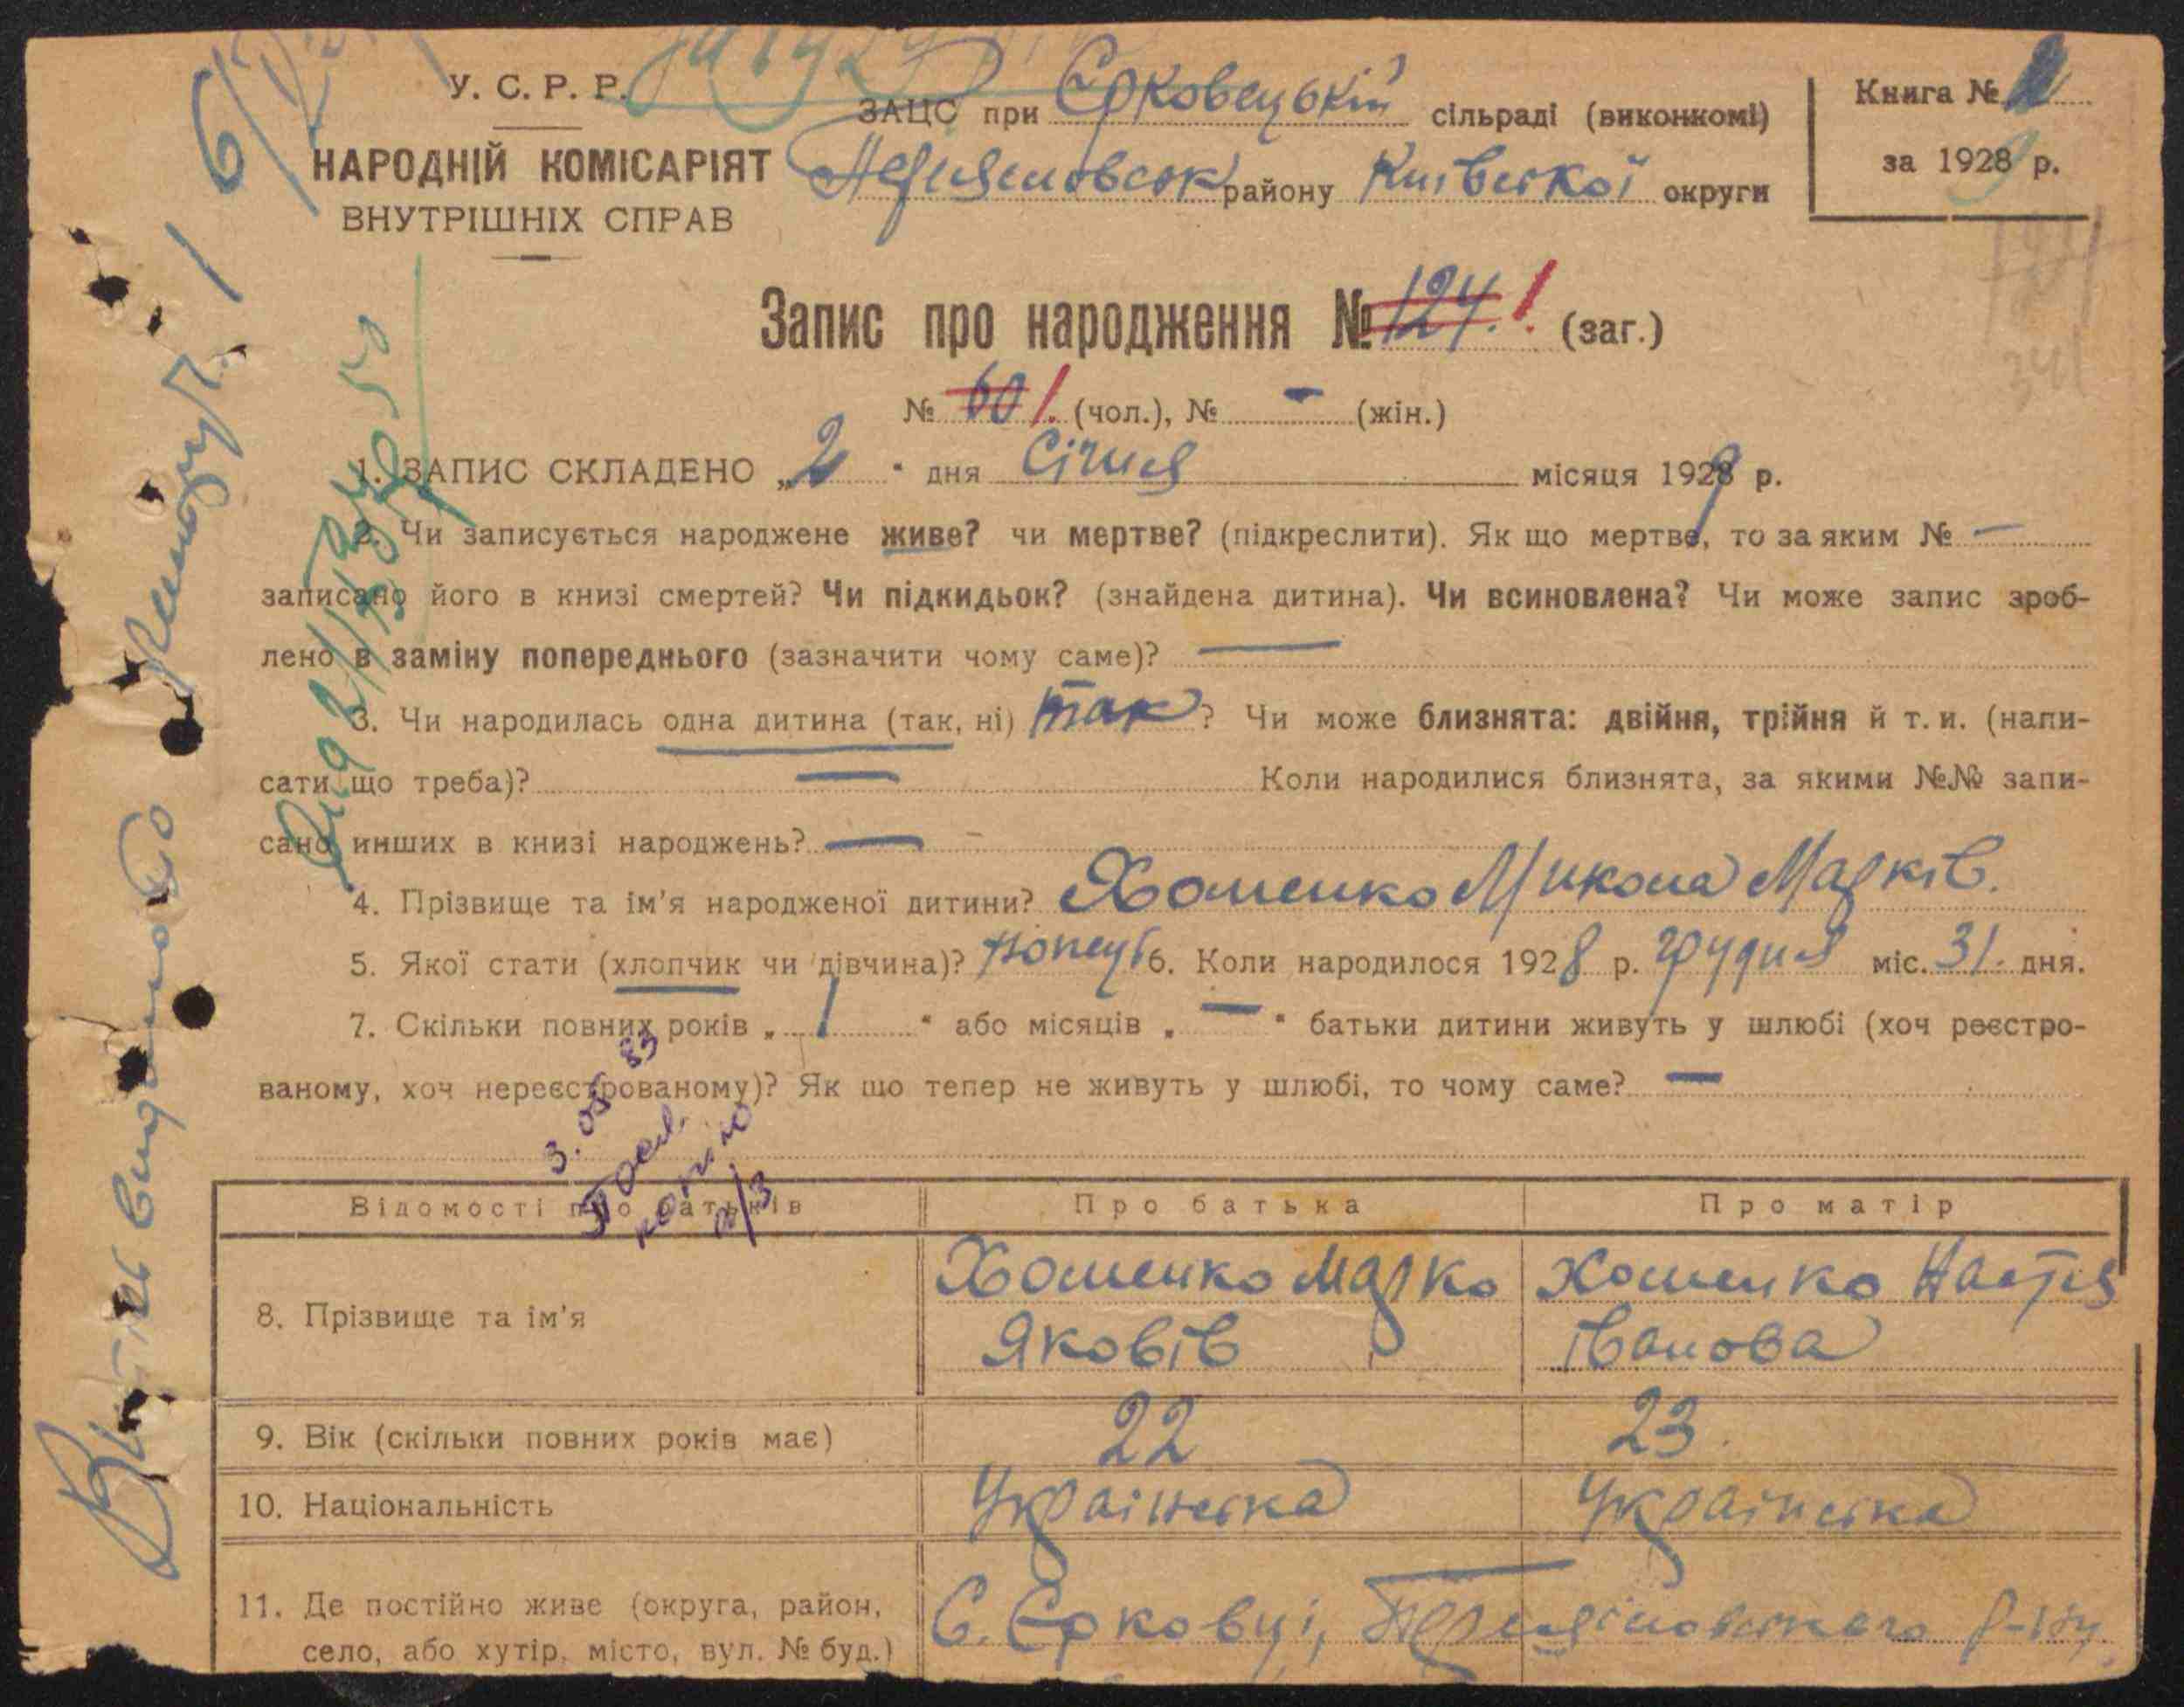 У. С. Р. Р.
НАРОДНІЙ КОМІСАРІЯТ
ВНУТРІШНІХ СПРАВ
ЗАЦС при Єрковецькій сільраді (виконкомі)
району Київської округи
Книга №
за 1929 р.
Запис про народження № 124. 1. (заг.)
№ 60 1. (чол.), № — (жін.)
1. ЗАПИС СКЛАДЕНО „2“ дня Січня місяця 1929 р.
2. Чи записується народжене живе? чи мертве? (підкреслити). Як що мертве, то за яким № —
записано його в книзі смертей? Чи підкидьок? (знайдена дитина). Чи всиновлена? Чи може запис зроб-
лено в заміну попереднього (зазначити чому саме)? —
3. Чи народилась одна дитина (так, ні) так? Чи може близнята: двійня, трійня й т. и. (напи-
сати що треба)? — Коли народилися близнята, за якими №№ запи-
сано инших в книзі народжень? —
4. Прізвище та ім'я народженої дитини? Хоменко Микола Марків.
5. Якої стати (хлопчик чи дівчина)? 6. Коли народилося 1928 р. грудня міс. 31. дня.
7. Скільки повних років „1“ або місяців „—“ батьки дитини живуть у шлюбі (хоч реєстро-
ваному, хоч нереєстрованому)? Як що тепер не живуть у шлюбі, то чому саме? —
Відомості про батьків Про батька Про матір
8. Прізвище та ім'я Хоменко Марко Яковів Хоменко Настя Іванова
9. Вік (скільки повних років має) 22 23
10. Національність Українська Українська
11. Де постійно живе (округа, район,
село, або хутір, місто, вул. № буд.) С. Єрковці, р-ну